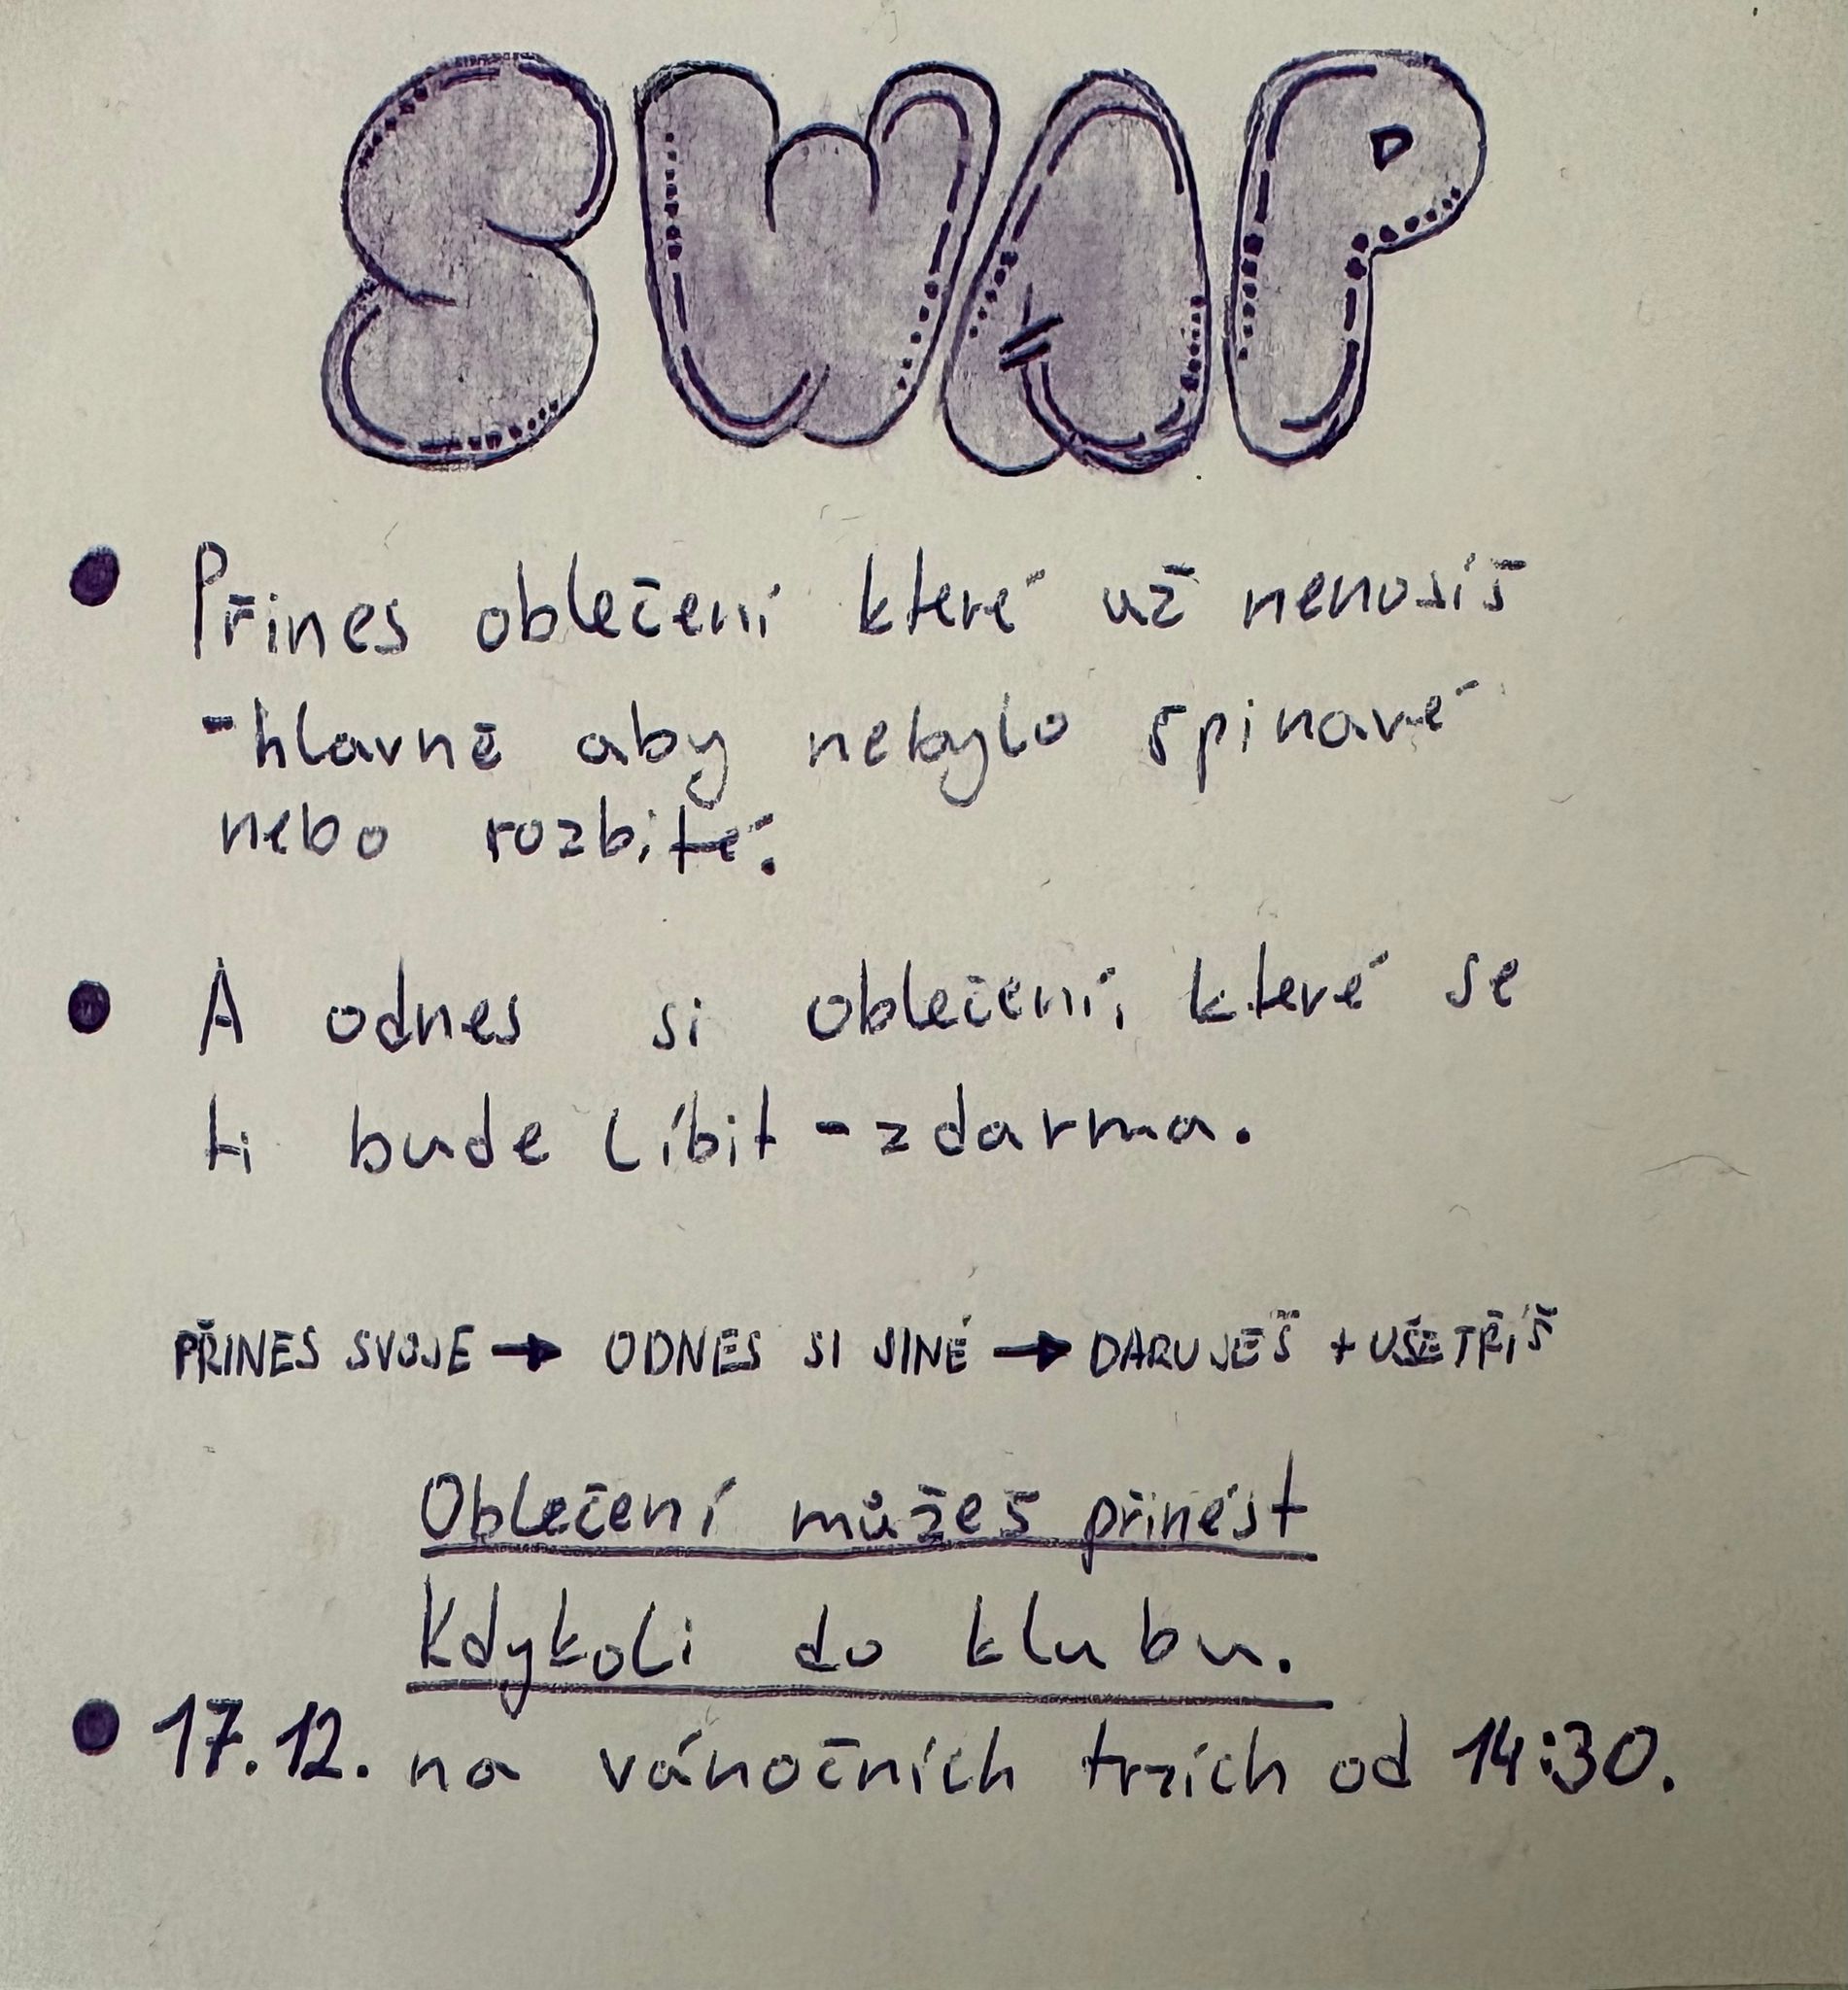 SWAP
• Přines oblečení které už nenosíš
- hlavně aby nebylo špinavé
nebo rozbité.
• A odnes si oblečení, které se
ti bude líbit - zdarma.
PŘINES SVOJE → ODNES SI JINÉ → DARUJEŠ + UŠETŘÍŠ
Oblečení můžeš přinést
Kdykoli do klubu.
• 17.12. na vánočních trzích od 14:30.